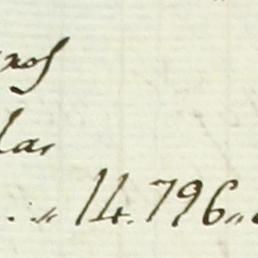 xos
las
14.796